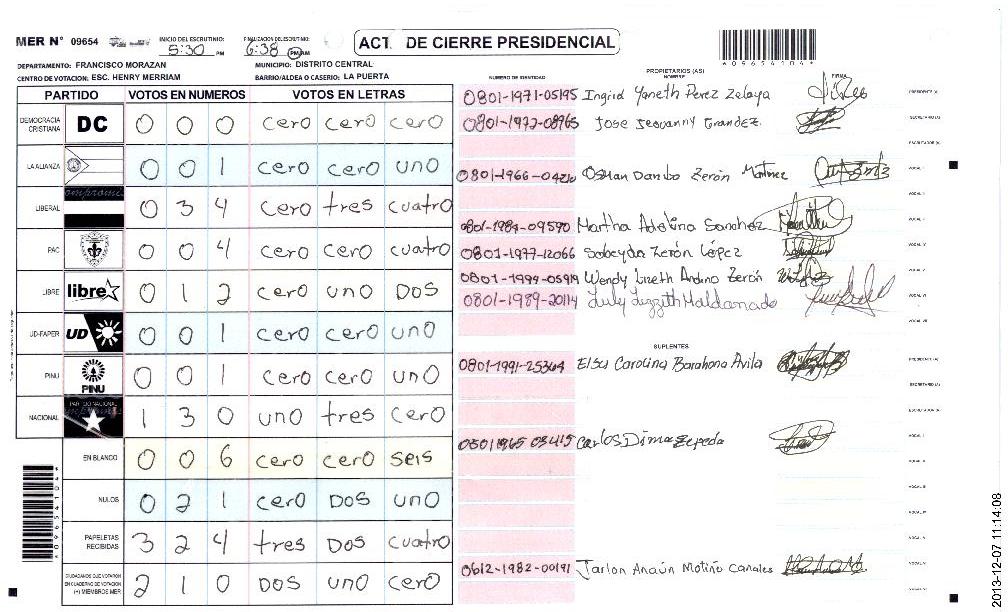 MER N° 09654 INICIO DEL ESCRUTINIO: 5:30 PM FINALIZACION DEL ESCRUTINIO: 6:38 PM/AM
ACT. DE CIERRE PRESIDENCIAL
DEPARTAMENTO: FRANCISCO MORAZAN MUNICIPIO: DISTRITO CENTRAL
CENTRO DE VOTACION: ESC. HENRY MERRIAM BARRIO/ALDEA O CASERIO: LA PUERTA
PARTIDO VOTOS EN NUMEROS VOTOS EN LETRAS
DEMOCRACIA CRISTIANA DC 0 0 0 cero cero cero
LA ALIANZA 0 0 1 cero cero uno
LIBERAL 0 3 4 cero tres cuatro
PAC 0 0 4 cero cero cuatro
LIBRE libre 0 1 2 cero uno Dos
UD-FAPER UD 0 0 1 cero cero uno
PINU PINU 0 0 1 cero cero uno
NACIONAL 1 3 0 uno tres cero
EN BLANCO 0 0 6 cero cero seis
NULOS 0 2 1 cero Dos uno
PAPELETAS RECIBIDAS 3 2 4 tres Dos cuatro
CIUDADANOS QUE VOTARON EN CUADERNO DE VOTACION (+) MIEMBROS MER 2 1 0 Dos uno cero
NUMERO DE IDENTIDAD PROPIETARIOS (AS) NOMBRE FIRMA
0801-1971-05195 Ingrid Yaneth Perez Zelaya PRESIDENTE (A)
0801-1977-08965 Jose Jeovanny Grandez SECRETARIO (A)
ESCRUTADOR (A)
0801-1966-04210 Osman Danilo Zerón Matinez VOCAL I
0801-1984-09590 Martha Adelina Sanchez
0801-1977-12066 Sobeyda Zerón López
0801-1999-05919 Wendy Lizeth Andino Zerón
0801-1989-20114 July Lizzeth Maldonado
SUPLENTES
0801-1991-25364 Elsa Carolina Barahona Avila PRESIDENTE (A)
SECRETARIO (A)
ESCRUTADOR (A)
0501 1965 03415 Carlos Dimas Zepeda
0612-1982-00191 Jarlon
2013-12-07 11:14:08